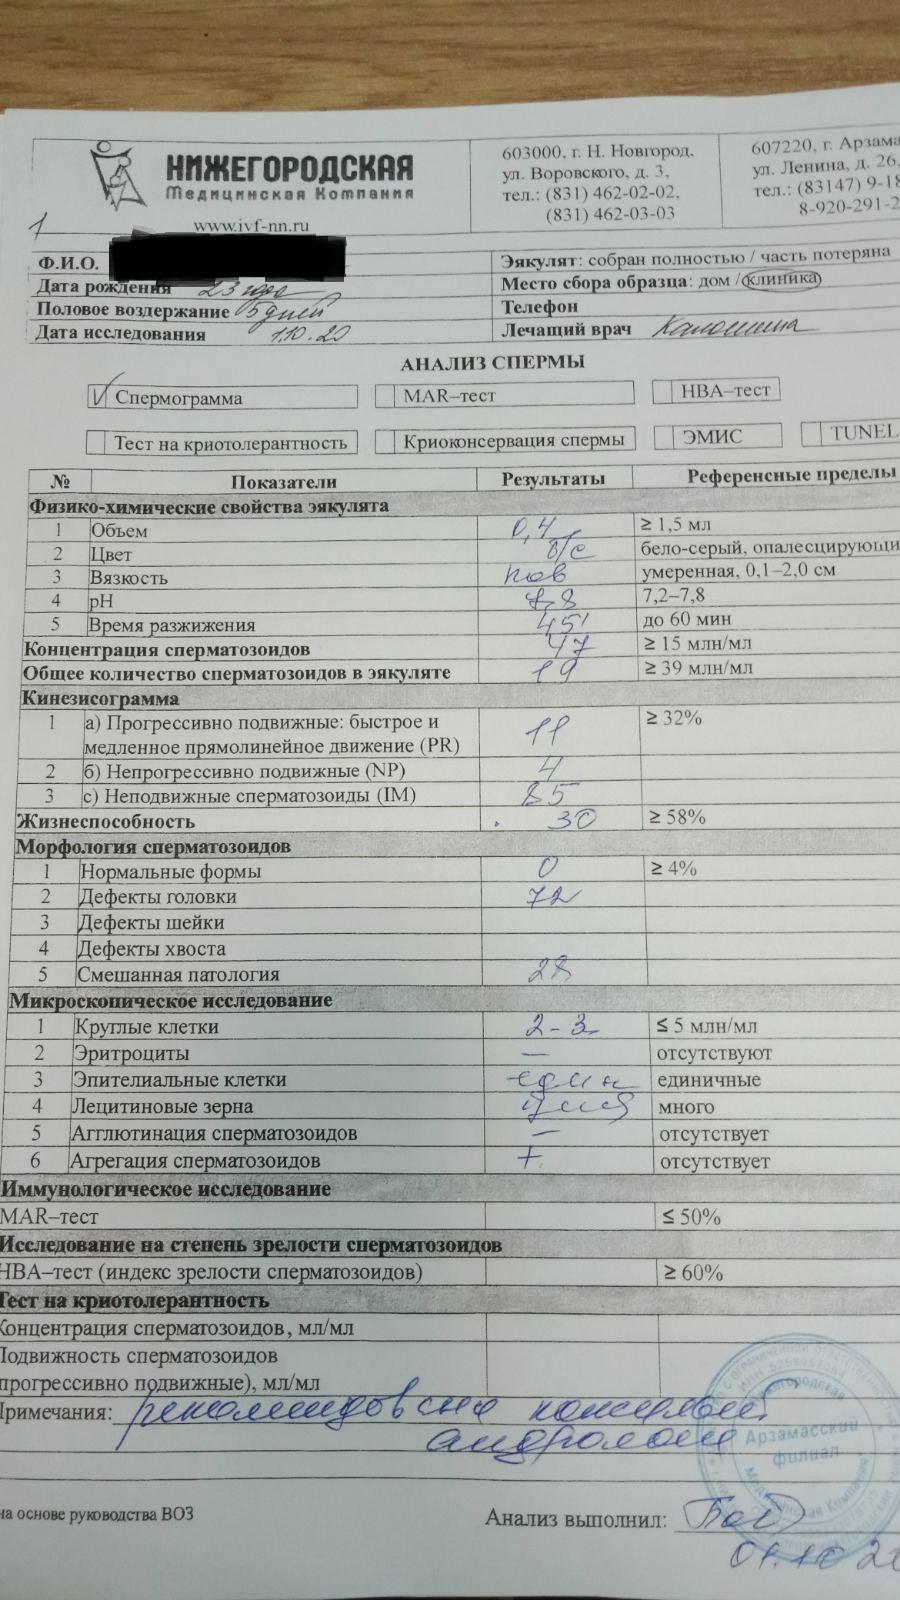 НИЖЕГОРОДСКАЯ
Медицинская Компания
www.ivf-nn.ru
603000, г. Н. Новгород,
ул. Воровского, д. 3,
тел.: (831) 462-02-02,
(831) 462-03-03
607220, г. Арзама
ул. Ленина, д. 26,
тел.: (83147) 9-18
8-920-291-2
1
Ф.И.О.
Дата рождения 23 года
Половое воздержание 5 дней
Дата исследования 1.10.20
Эякулят: собран полностью / часть потеряна
Место сбора образца: дом / клиника
Телефон
Лечащий врач
АНАЛИЗ СПЕРМЫ
V Спермограмма MAR–тест HBA–тест
Тест на криотолерантность Криоконсервация спермы ЭМИС TUNEL
№ Показатели Результаты Референсные пределы
Физико-химические свойства эякулята
1 Объем 0,4 ≥ 1,5 мл
2 Цвет б/с бело-серый, опалесцирующи
3 Вязкость пов умеренная, 0,1–2,0 см
4 pH 7,2–7,8
5 Время разжижения 45' до 60 мин
Концентрация сперматозоидов 47 ≥ 15 млн/мл
Общее количество сперматозоидов в эякуляте 19 ≥ 39 млн/мл
Кинезисограмма
1 а) Прогрессивно подвижные: быстрое и
медленное прямолинейное движение (PR) 11 ≥ 32%
2 б) Непрогрессивно подвижные (NP) 4
3 с) Неподвижные сперматозоиды (IM) 85
Жизнеспособность 30 ≥ 58%
Морфология сперматозоидов
1 Нормальные формы 0 ≥ 4%
2 Дефекты головки 72
3 Дефекты шейки
4 Дефекты хвоста
5 Смешанная патология 28
Микроскопическое исследование
1 Круглые клетки 2-3 ≤ 5 млн/мл
2 Эритроциты — отсутствуют
3 Эпителиальные клетки един единичные
4 Лецитиновые зерна много
5 Агглютинация сперматозоидов — отсутствует
6 Агрегация сперматозоидов + отсутствует
Иммунологическое исследование
MAR–тест ≤ 50%
Исследование на степень зрелости сперматозоидов
HBA–тест (индекс зрелости сперматозоидов) ≥ 60%
Тест на криотолерантность
Концентрация сперматозоидов, мл/мл
Подвижность сперматозоидов
прогрессивно подвижные), мл/мл
Примечания: рекомендована консульт.
андролога
Нижегородская
Арзамасский
филиал
Медицинская Компания
на основе руководства ВОЗ
Анализ выполнил:
01.10 20